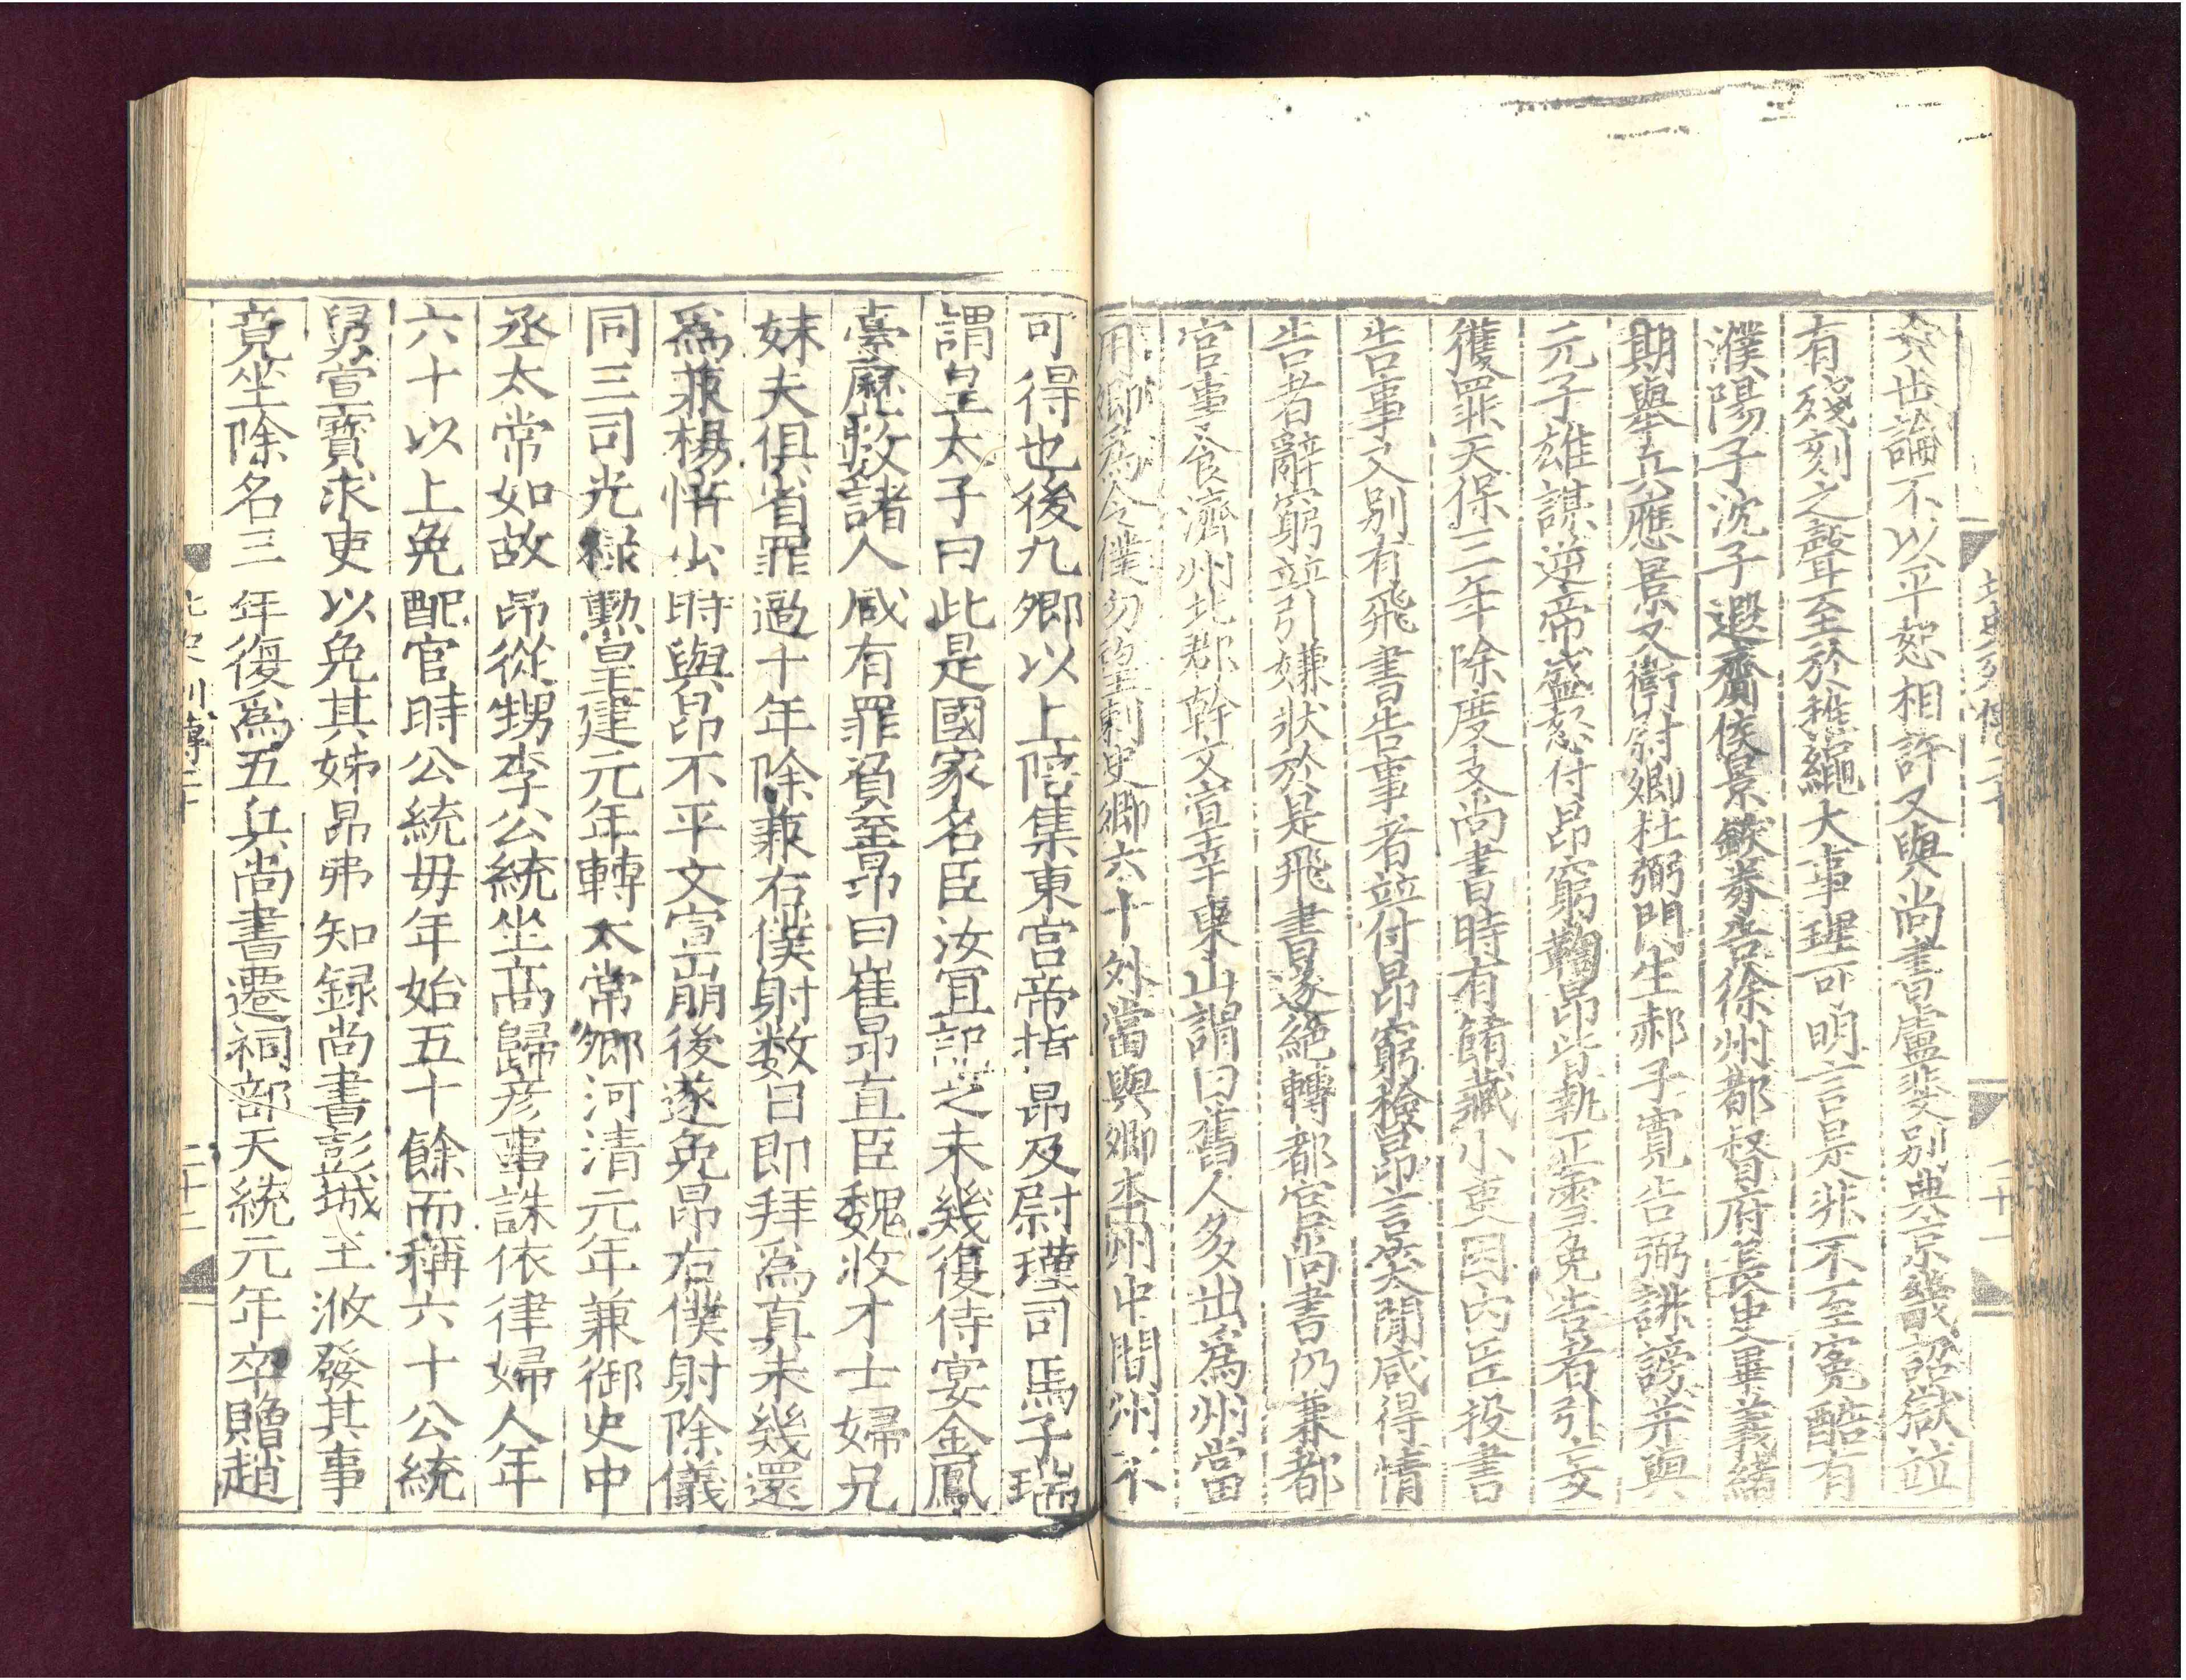 北史列傳二十
二十一
公也論不以平恕相許又與尚書盧斐別典京畿詔獄並
有殘刻之聲至於推繩大事理可明言是非不至寃酷有
濮陽子沈子遐齎侯景鐵券告徐州都督府長史畢義緒
期舉兵應景又衛尉卿杜弼門生郝子寬告弼誹謗并與
元子雄謀逆帝盛怒付昂窮鞫昂皆執正雪免告者引妄
獲罪天保三年除度支尚書時有餚藏小吏因內臣投書
告事又別有飛書告事者並付昂窮檢昂言笑閒咸得情
告者辭窮並引嫌狀於是飛書遂絕轉都官尚書仍兼都
官事食濟州北郡幹文宣幸東山謂曰舊人多出爲州當
用卿爲令僕勿望刺史卿六十外當與卿本州中間州不
可得也後九卿以上陪集東宮帝指昂及尉瑾司馬子瑞
謂皇太子曰此是國家名臣汝宜記之未幾復侍宴金鳳
臺歷數諸人咸有罪負至昂曰崔昂直臣魏收才士婦兄
妹夫俱省罪過十年除兼右僕射数日即拜爲真未幾還
爲兼楊愔少時與昂不平文宣崩後遂免昂右僕射除儀
同三司光祿勲皇建元年轉太常卿河清元年兼御史中
丞太常如故昂從甥李公統坐高歸彥事誅依律婦人年
六十以上免配官時公統毋年始五十餘而稱六十公統
舅宣寶求吏以免其姊昂弗知録尚書彭城王浟發其事
竟坐除名三年復爲五兵尚書遷祠部天統元年卒贈趙
北史列傳二十
二十二